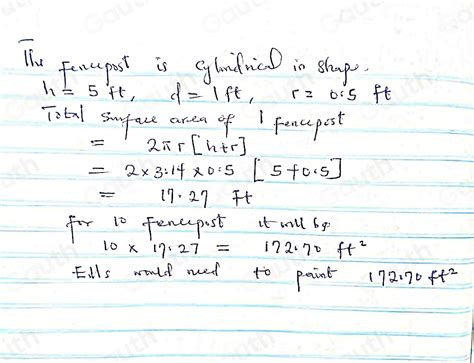 The fencepost is cylindrical in shape.
h = 5 ft, d = 1 ft, r = 0.5 ft
Total surface area of 1 fencepost
= 2πr[h+r]
= 2×3.14×0.5 [5+0.5]
= 17.27 ft
for 10 fencepost it will be
10 × 17.27 = 172.70 ft²
Ells would need to paint 172.70 ft²